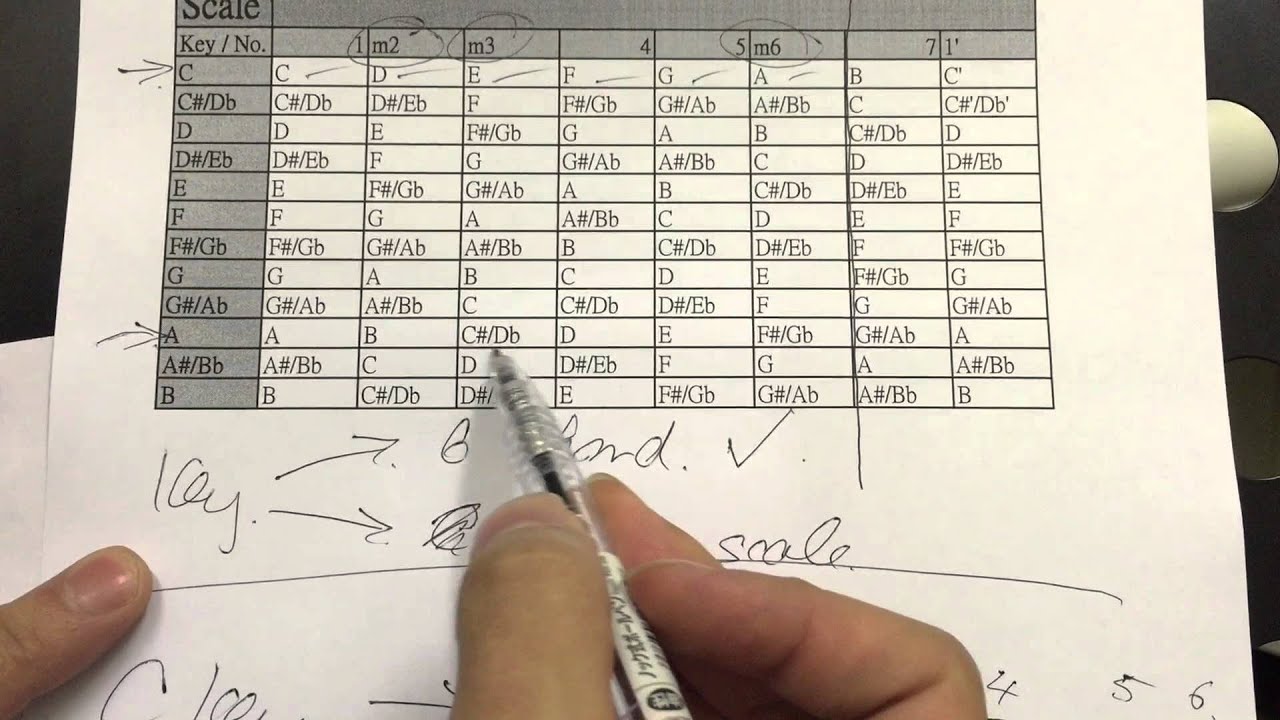 Scale
Key / No. 1 m2 m3 4 5 m6 7 1'
C C D E F G A B C'
C#/Db C#/Db D#/Eb F F#/Gb G#/Ab A#/Bb C C#'/Db'
D D E F#/Gb G A B C#/Db D
D#/Eb D#/Eb F G G#/Ab A#/Bb C D D#/Eb
E E F#/Gb G#/Ab A B C#/Db D#/Eb E
F F G A A#/Bb C D E F
F#/Gb F#/Gb G#/Ab A#/Bb B C#/Db D#/Eb F F#/Gb
G G A B C D E F#/Gb G
G#/Ab G#/Ab A#/Bb C C#/Db D#/Eb F G G#/Ab
A A B C#/Db D E F#/Gb G#/Ab A
A#/Bb A#/Bb C D D#/Eb F G A A#/Bb
B B C#/Db D#/ E F#/Gb G#/Ab A#/Bb B
6
Key.
scale
C key 4 5 6.
ノック式ボールペン